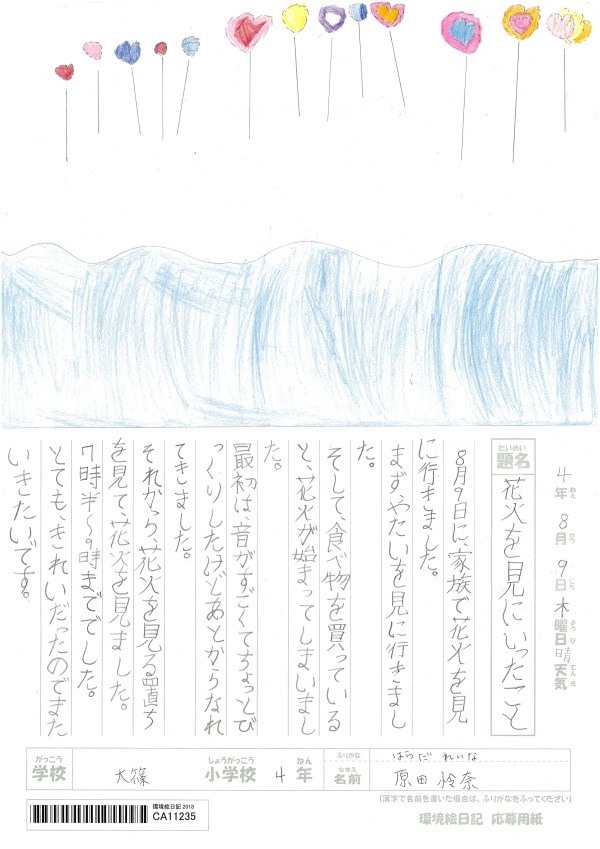 4年ねん8月がつ9日にち木曜日ようび晴天気てんき
題名だいめい 花火を見にいったこと
8月9日に、家族で花火を見
に行きました。
まず、やたいを見に行きまし
た。
そして、食べ物を買っている
と、花火が始まってしまいまし
た。
最初は、音がすごくてちょっとび
っくりしたけどあとからなれ
てきました。
それから、花火を見る
を見て、花火を見ました。
7時半〜9時まででした。
とても、きれいだったのでまた
いきたいです。
がっこう しょうがっこう ねん ふりがな はらだ れいな
学校 大篠 小学校 4 年 なまえ 名前 原田 怜奈
(漢字で名前を書いた場合は、ふりがなをふってください)
環境絵日記 応募用紙
環境絵日記 2018
CA11235